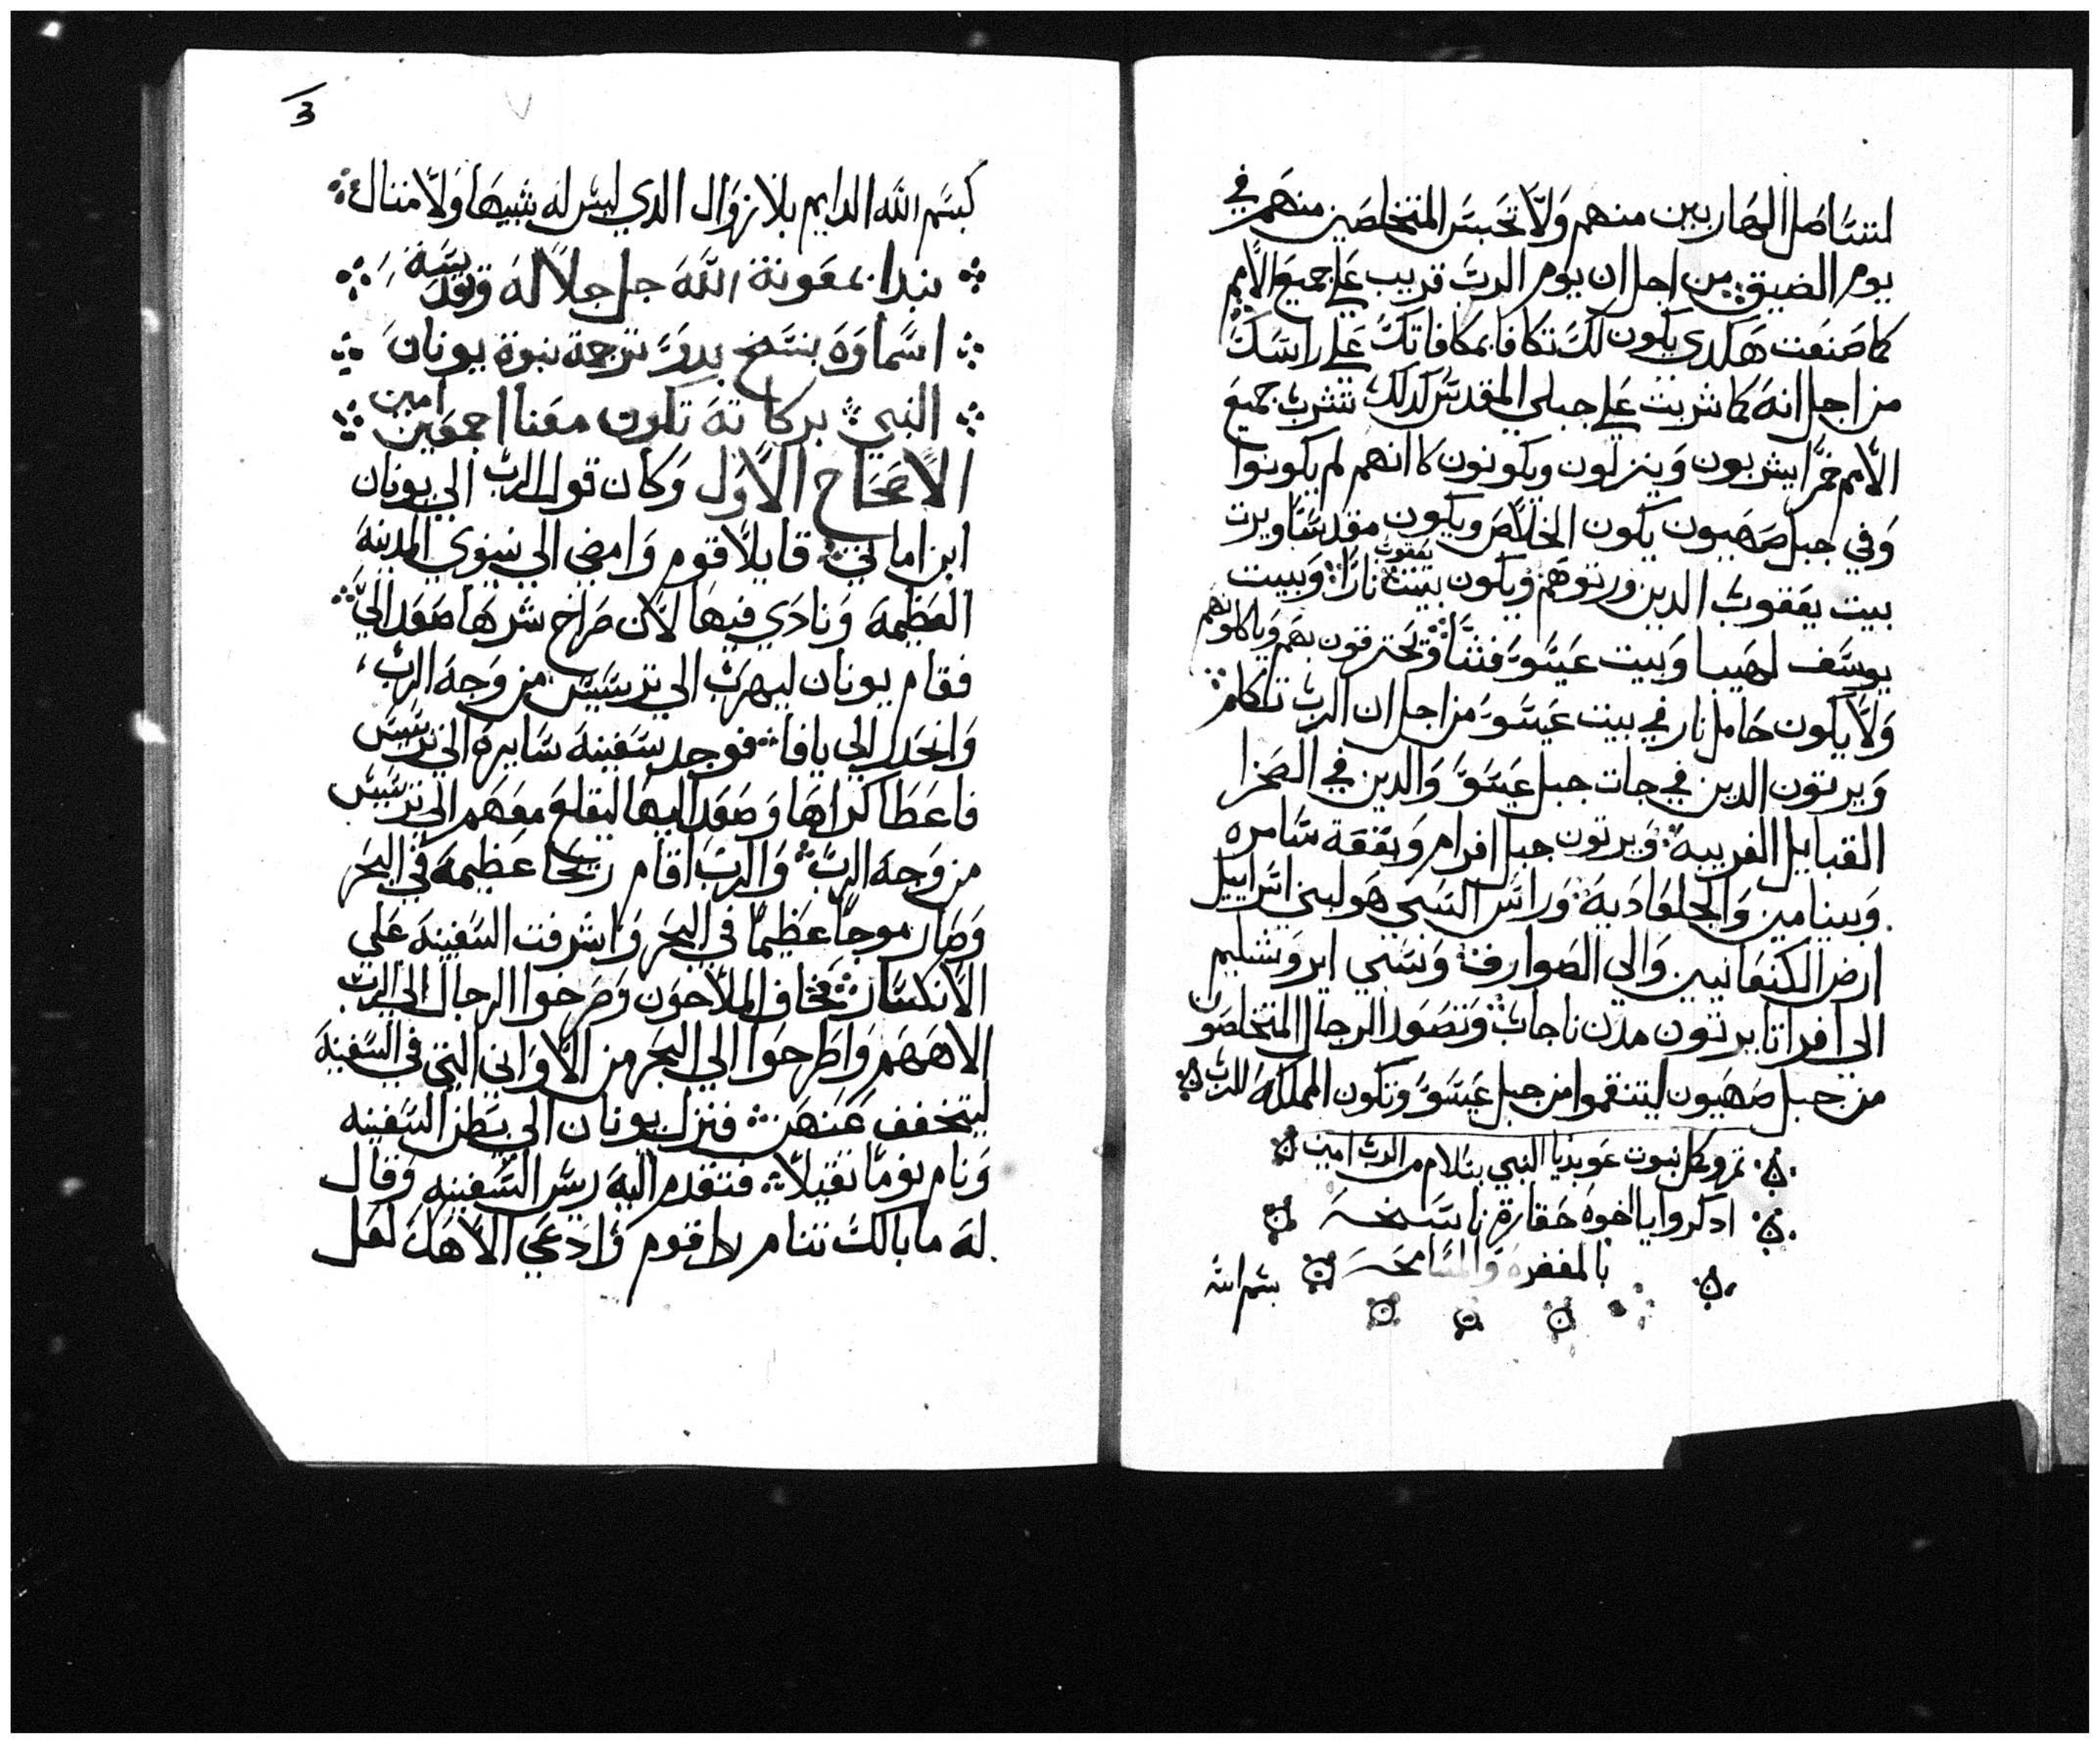 لتستاصل الهاربين منهم ولا تحبس المتخلصين منهم في
يوم الضيق من اجل ان يوم الرب قريب علي جميع الامم
كما صنعت هكدي يكون لك تكافا بمكافاتك علي راسك
من اجل انه كما شربت علي جبلي المقدس كدلك تشرب جميع
الامم خمرا يشربون وينزلون ويكونون كانهم لم يكونوا
وفي جبل صهيون يكون الخلاص ويكون مقدسا ويرت
بيت يعقوب الدين ورتوهم ويكون بيت يعقوب نارا وبيت
يوسف لهيبا وبيت عيسو قشا وتحترقون بهم وياكلونهم
ولا يكون حامل نار في بيت عيسو من اجل ان الرب تكلم
ويرتون الدين في جات جبل عيسو والدين في الصحرا
القبايل الغريبه ويرتون جبل افرام وبقعة سامره
وبينامين والجلعاديه وراس السبي هو لبني اسراييل
ارض الكنعانيين والي الصوارف وسبي ايروشليم
الي افراتا يرتون مدن ناجاب وتصعد الرجال المتخلصون
من جبل صهيون لينتقموا من جبل عيسو وتكون المملكه للرب
تم وكمل نبوت عوبديا النبي بسلام من الرب امين
ادكروا يا اخوه حقارة ناسخه
بالمغفره والمسامحه
بسم الله
3
كبسم الله الدايم بلا زوال الدي ليس له شبيها ولا متال
نبدا بمعونة الله جل جلاله وتقدسة
اسماوه بنسخ بدو ترجمة نبوة يونان
النبي بركاته تكون معنا اجمعين امين
الاصحاح الاول وكان قول الرب الي يونان
ابن اماتي قايلا قوم وامضي الي نينوي المدينه
العظيمه ونادي فيها لان صراخ شرها صعد الي
فقام يونان ليهرب الي ترسيس من وجه الرب
وانحدر الي يافا فوجد سفينه سايره الي ترسيس
فاعطا كراها وصعد اليها ليقلع معهم الي ترسيس
من وجه الرب والرب اقام ريحا عظيمه في البحر
وصار موجا عظيما في البحر واشرفت السفينه علي
الانكسار فخاف الملاحون وصرخوا الرجال الي الرب
الاههم واطرحوا الي البحر من الاواني التي في السفينه
ليتخفف عنهن فنزل يونان الي بطن السفينه
ونام نوما تقيلا فتقدم اليه ريس السفينه وقال
له ما بالك تنام قوم وادعي الاهك لعل